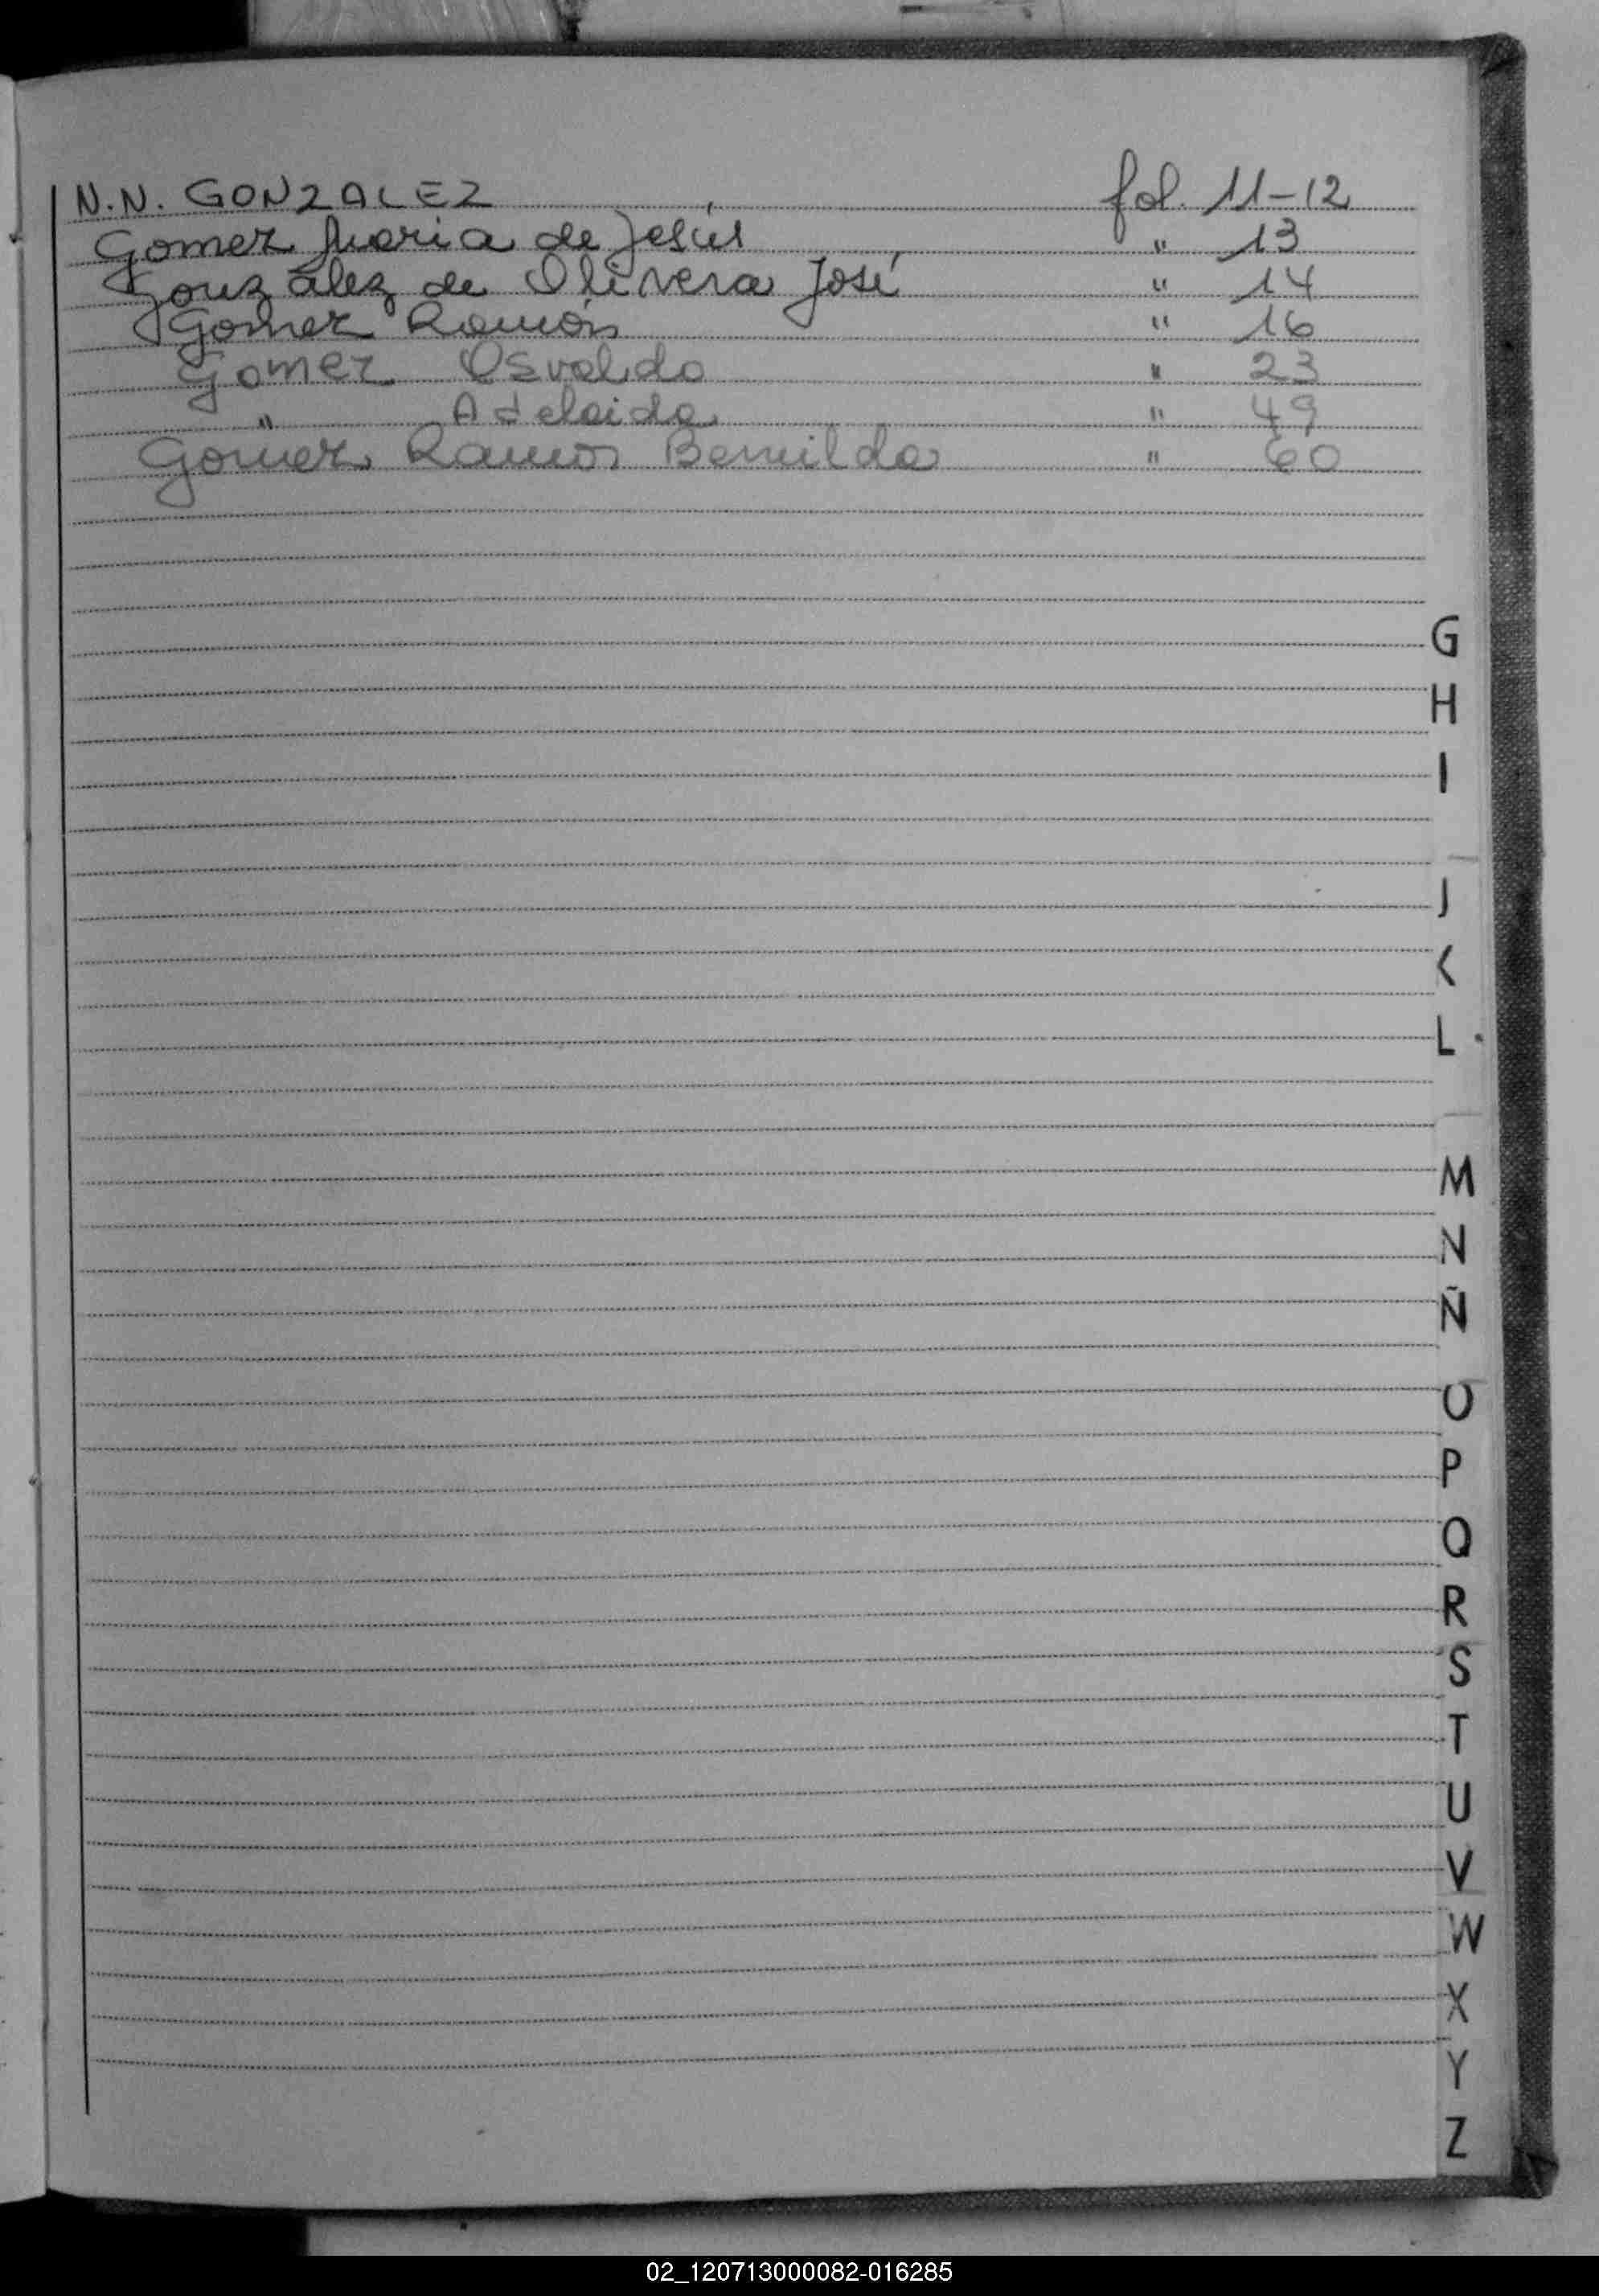 N.N. GONZALEZ fol. 11-12
Gomez Maria de Jesús " 13
González de Olivera José " 14
Gomez Ramón " 16
Gomez Osvaldo " 23
" Adelaida " 49
Gomez Ramos Bernilda " 60
G
H
I
J
K
L
M
N
Ñ
O
P
Q
R
S
T
U
V
W
X
Y
Z
02_120713000082-016285